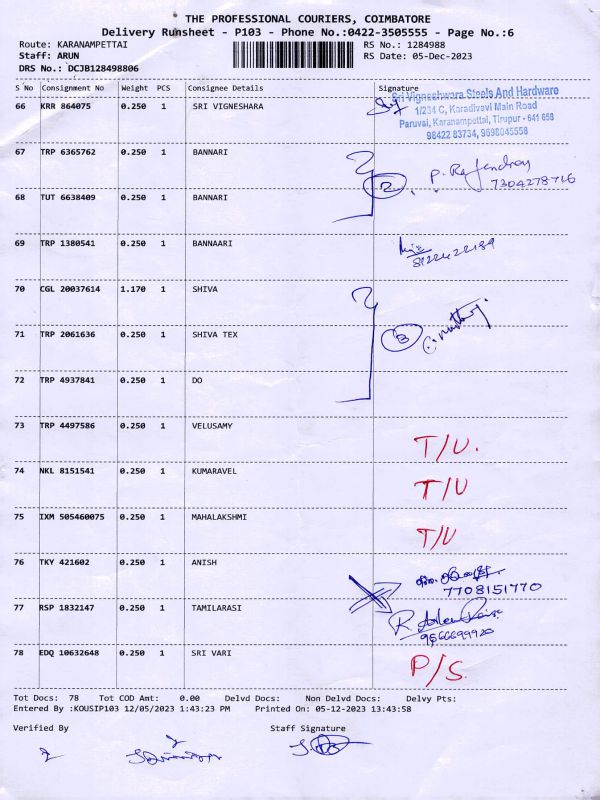 THE PROFESSIONAL COURIERS, COIMBATORE
Delivery Runsheet - P103 - Phone No.:0422-3505555 - Page No.:6
Route: KARANAMPETTAI RS No.: 1284988
Staff: ARUN RS Date: 05-Dec-2023
DRS No.: DCJB128498806
S No Consignment No Weight PCS Consignee Details Signature
66 KRR 864075 0.250 1 SRI VIGNESHARA
Sri Vigneshwara Steels And Hardware
1/234 C, Karadivavi Main Road
Paruvai, Karanampettai, Tirupur - 641 658
98422 83734, 9698045558
67 TRP 6365762 0.250 1 BANNARI
2 P. Rajendran
7304278716
68 TUT 6638409 0.250 1 BANNARI
69 TRP 1380541 0.250 1 BANNAARI
8122422189
70 CGL 20037614 1.170 1 SHIVA
71 TRP 2061636 0.250 1 SHIVA TEX
3
72 TRP 4937841 0.250 1 DO
73 TRP 4497586 0.250 1 VELUSAMY
T/U.
74 NKL 8151541 0.250 1 KUMARAVEL T/U
75 IXM 505460075 0.250 1 MAHALAKSHMI
T/U
76 TKY 421602 0.250 1 ANISH
7708151770
77 RSP 1832147 0.250 1 TAMILARASI
9566699920
78 EDQ 10632648 0.250 1 SRI VARI P/S.
Tot Docs: 78 Tot COD Amt: 0.00 Delvd Docs: Non Delvd Docs: Delvy Pts:
Entered By :KOUSIP103 12/05/2023 1:43:23 PM Printed On: 05-12-2023 13:43:58
Verified By Staff Signature